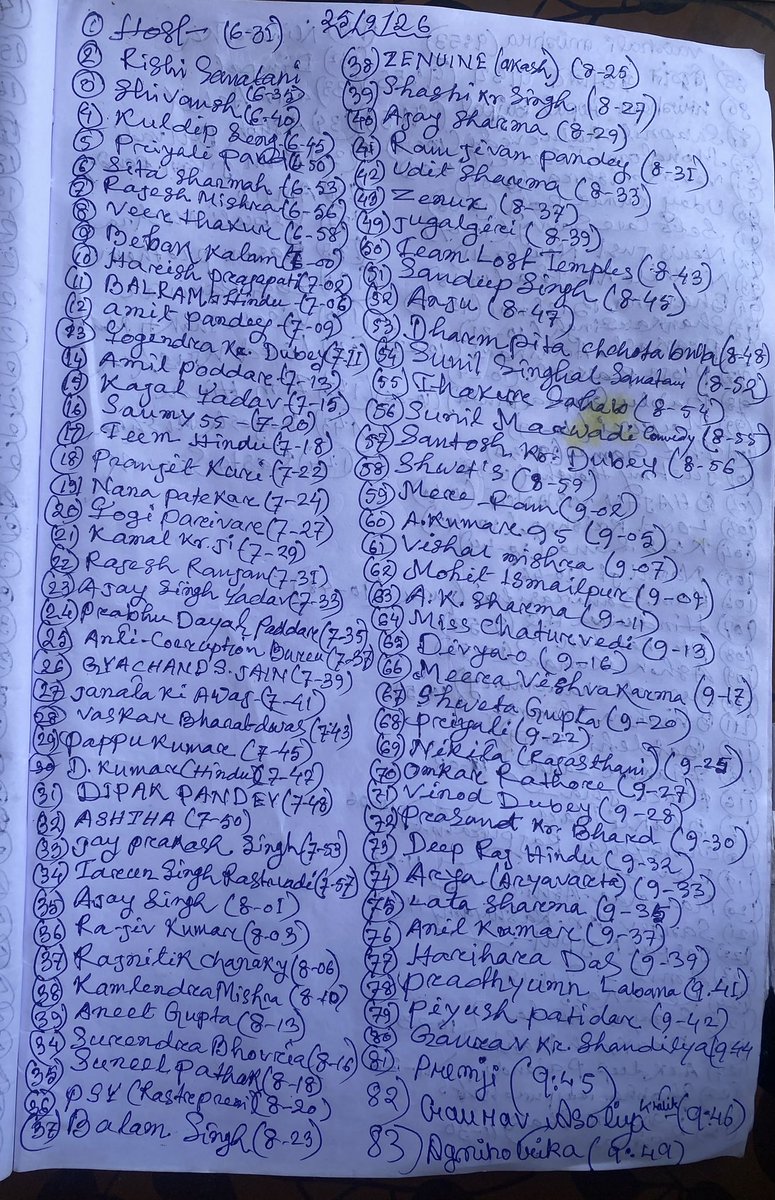 25/9/26
① Host - (6-31)
② Rishi Sanatani
③ Shivansh (6-35)
④ Kuldip Seng (6-40)
⑤ Priyali (6-45)
⑥ Sita Sharmah (6-50)
⑦ Rajesh Mishra (6-53)
⑧ Veer thakur (6-56)
⑨ Bebak Kalam (6-58)
⑩ Harish prajapati (7-02)
⑪ BALRAM Hindu - (7-06)
⑫ amit pandey - (7-09)
⑬ Yogendra Kr. Dubey (7-11)
⑭ Amil poddar (7-13)
⑮ Kajal Yadav (7-15)
⑯ Saumy 55 - (7-20)
⑰ Teem Hindu (7-18)
⑱ Pranjit Kuri (7-22)
⑲ Nana patekar (7-24)
⑳ Yogi parivar (7-27)
㉑ Kamal Kr. ji (7-29)
㉒ Rajesh Ranjan (7-31)
㉓ Ajay Singh Yadav (7-33)
㉔ Prabhu Dayal Poddar (7-35)
㉕ Anti-Corruption Bureu (7-37)
㉖ GYACHAND S. JAIN (7-39)
㉗ Janata Ki Awaj - (7-41)
㉘ Vaskar Bharatdwas (7-43)
㉙ pappu Kumar (7-45)
㉚ D. Kumar (Hindu) (7-47)
㉛ DIPAK PANDEY (7-48)
㉜ ASHTHA (7-50)
㉝ Jay prakash Singh (7-53)
㉞ Tarun Singh Rastravadi (7-57)
㉟ Ajay Singh (8-01)
㊱ Rajiv Kumar (8-03)
㊲ Rajnitik chanaky (8-06)
㊳ Kamlendra Mishra (8-10)
㊴ Aneet Gupta (8-13)
㉞ Surendra Bhovria (8-16)
㉟ Suneel pathak (8-18)
㊱ PSY (Rastrapremi) (8-20)
㊲ Balam Singh (8-23)
㊳ ZENUINE (akash) (8-25)
㊴ Shashi Kr Singh (8-27)
㊵ Ajay Sharma (8-29)
㊶ Ram jivan pandey (8-31)
㊷ Udit Sharma (8-33)
㊸ Zenux (8-37)
㊾ jugalgiri (8-39)
㊿ Team Lost Temples (8-43)
(51) Sandeep Singh (8-45)
(52) Anju (8-47)
(53) Dharam pita chchota buwa (8-48)
(54) Sunil Singhal Sanatani (8-52)
(55) Thakur Sahab (8-54)
(56) Sunil Marwadi Comedy (8-55)
(57) Santosh Kr. Dubey (8-56)
(58) Shweti's (8-59)
(59) Mere Ram (9-02)
(60) A. Kumar 95 (9-05)
(61) Vishal mishra (9-07)
(62) Mohit Ismailpur (9-09)
(63) A.K. Sharma (9-11)
(64) Miss Chaturvedi (9-13)
(65) Divya-o (9-16)
(66) Meera Vishvakarma (9-17)
(67) Shweta Gupta (9-20)
(68) priyali (9-22)
(69) Nikita (Rajasthani) (9-25)
(70) Omkar Rathore (9-27)
(71) Vinod Dubey (9-28)
(72) Prasand Kr. Bhard (9-30)
(73) Deep Raj Hindu (9-32)
(74) Arya (Aryavarta) (9-33)
(75) Lata Sharma (9-35)
(76) Anil Kumar (9-37)
(77) Harihara Das (9-39)
(78) pradhyumn Labana (9.41)
(79) Piyush patidar (9-42)
(80) Gaurav Kr. Shandilya (9-44
(81) Premji (9:45)
82) Gauhav (9:46)
83) Agnihotrika (9:49)